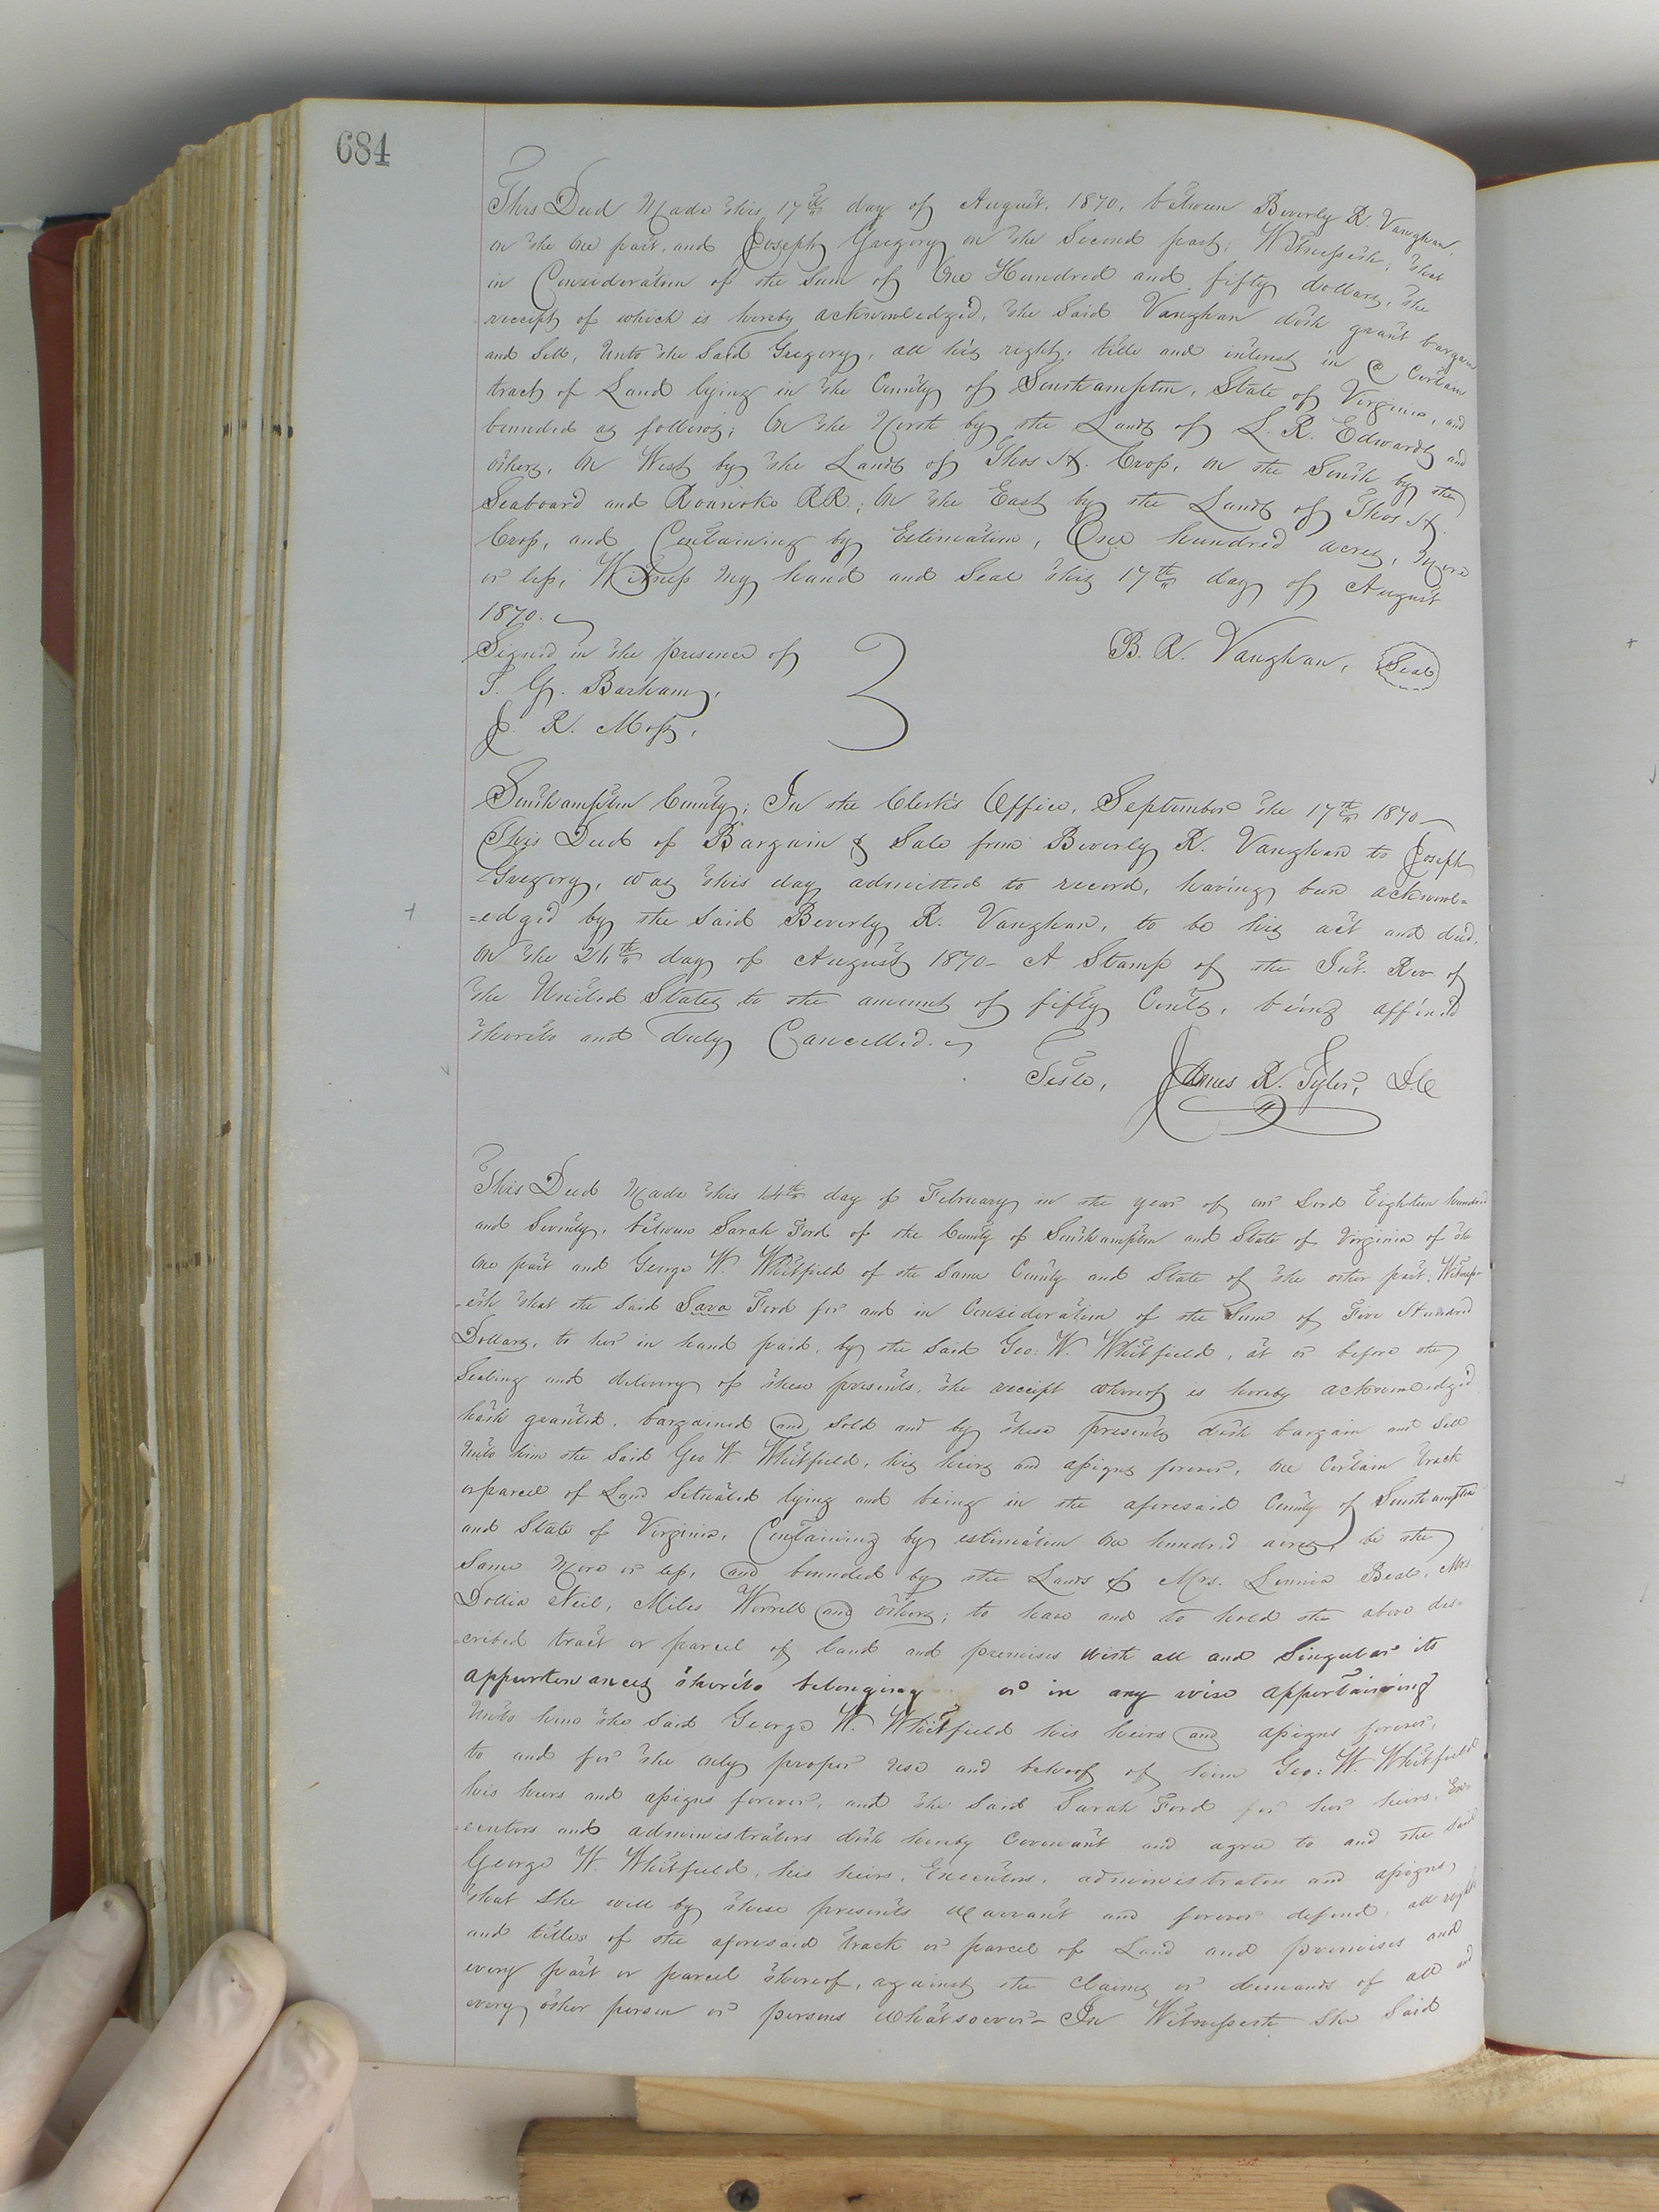 684
This Deed Made this 17th day of August, 1870, between Beverly R. Vaughan,
on the one part, and Joseph Gregory on the Second part; Witnesseth; that
in Consideration of the Sum of One Hundred and fifty dollars, the
receipt of which is hereby acknowledged, the Said Vaughan doth grant bargain
and Sell, Unto the Said Gregory, all his right, title and interest in a Certain
tract of Land lying in the County of Southampton, State of Virginia, and
bounded as follows; On the North by the Lands of L. R. Edwards and
others, On West by the Lands of Thos H. Cross, on the South by the
Seaboard and Roanoke RR.; On the East by the Lands of Thos H.
Cross, and Containing by Estimation, One hundred acres, More
or less, Witness My hand and Seal this 17th day of August
1870.
Signed in the presence of
B. R. Vaughan, Seal
T. G. Barham,
J. R. Moss,
Southampton County; In the Clerk's Office, September the 17th 1870
This Deed of Bargain & Sale from Beverly R. Vaughan to Joseph
Gregory, was this day admitted to record, having been acknowl=
=edged by the Said Beverly R. Vaughan, to be his act and deed,
on the day of August 1870- A Stamp of the Int. Rev. of
the United States to the amount of fifty Cents, being affixed
thereto and duly Cancelled.
Teste, James R. Tyler, D.C
This Deed Made this 14th day of February in the year of our Lord Eighteen hundred
and Seventy, between Sarah Ford of the County of Southampton and State of Virginia of the
One part and George W. Whitfield of the Same County and State of the other part; Witness=
=eth that the Said Sara Ford for and in Consideration of the Sum of Five Hundred
Dollars, to her in hand paid, by the Said Geo: W. Whitfield, at or before the
Sealing and delivery of these presents, the receipt whereof is hereby acknowledged
hath granted, bargained and Sold and by these presents doth bargain and Sell
Unto him the Said Geo W. Whitfield, his heirs and assigns forever, One Certain track
or parcel of Land Situated lying and being in the aforesaid County of Southampton
and State of Virginia, Containing by estimation One hundred acres, be the
Same More or less, and bounded by the Lands of Mrs. Beal, Mrs.
Neil, Miles Worrell and others; to have and to hold the above des=
=cribed tract or parcel of land and premises with all and Singular its
appurtenances thereto belonging or in any wise appertaining
Unto him the Said George W. Whitfield his heirs and assigns forever,
to and for the only proper use and behoof of him Geo: W. Whitfield
his heirs and assigns forever, and the Said Sarah Ford for her heirs, Exe=
=cutors and administrators doth hereby Covenant and agree to and the Said
George W. Whitfield, his heirs, Executors, administrators and assigns,
that She will by these presents Warrant and forever defend, all right
and titles of the aforesaid track or parcel of Land and premises and
every part or parcel thereof, against the Claims or demands of all and
every other person or persons Whatsoever- In Witnesseth the Said